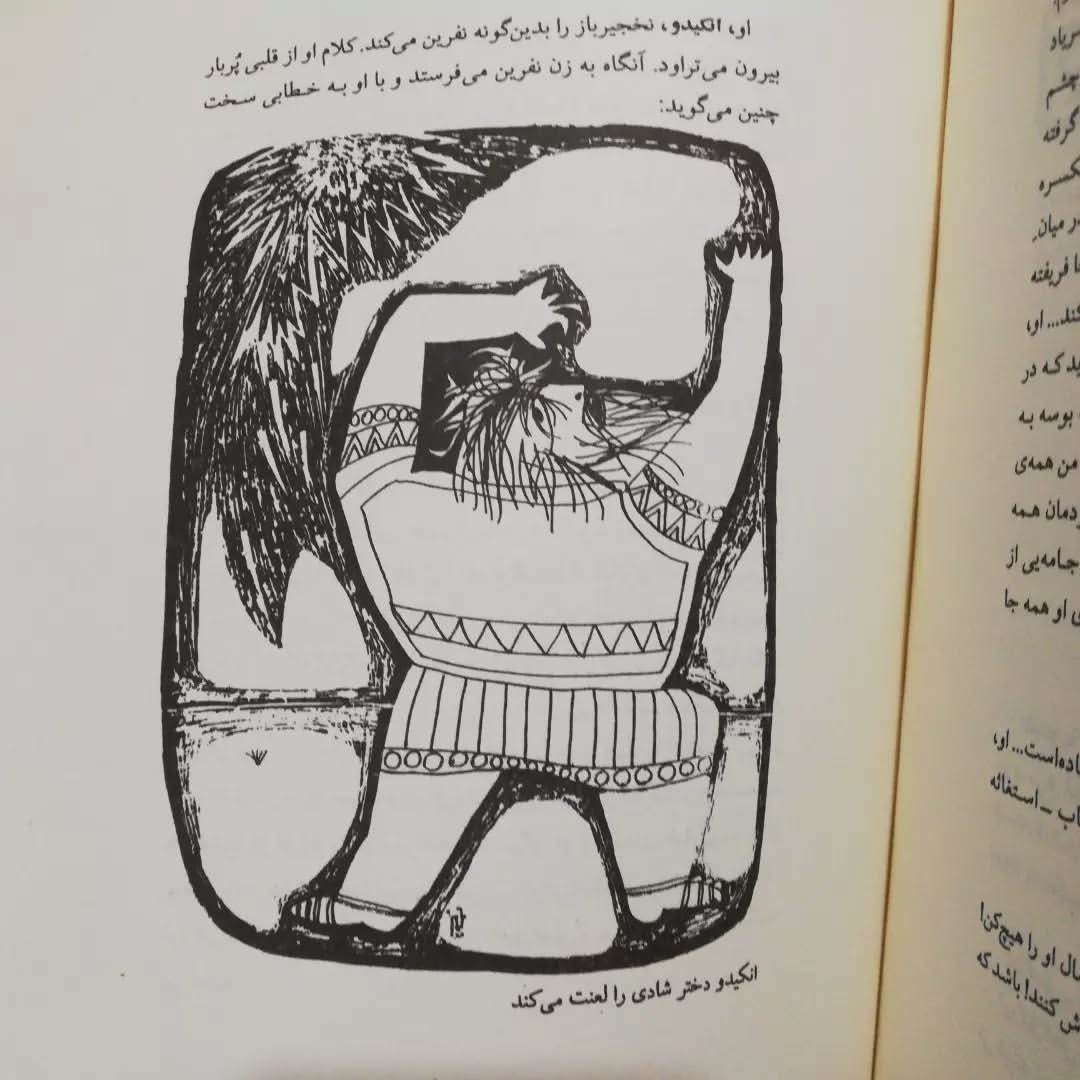 او، انکیدو، نخجیرباز را بدین‌گونه نفرین می‌کند. کلام او از قلبی پُربار
بیرون می‌تراود. آنگاه به زن نفرین می‌فرستد و با او به خطابی سخت
چنین می‌گوید:
انکیدو دختر شادی را لعنت می‌کند
چشم
گرفته
در میانِ
فریفته
کند... او،
که در
بوسه به
من همه‌ی
همه
جامه‌یی از
او همه جا
او،
ـ استغاثه
او را هیچ‌کن!
کنند! باشد که